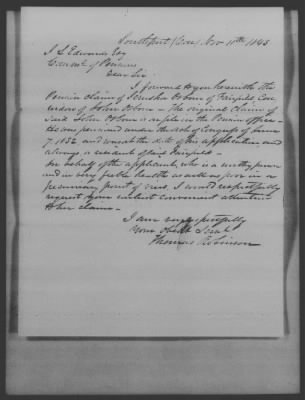 Southport Con. Nov 10th 1843
J L Edwards Esq
Commr. of Pensions
Dear Sir
I forward to you herewith the
Pension claim of Jerusha Osborn of Fairfield Con
widow of John Osborn - The original claim of
said John Osborn is on file in the Pension Office -
He was pensioned under the Act of Congress of June
7. 1832 and was at the date of his application and
always a resident of said Fairfield -
In behalf of the applicant, who is a worthy woman
and in very feeble health as well as poor in a
pecuniary point of view, I would respectfully
request your earliest convenient attention
to her claim -
I am very respectfully
Your Obedt Servt
Thomas Robinson